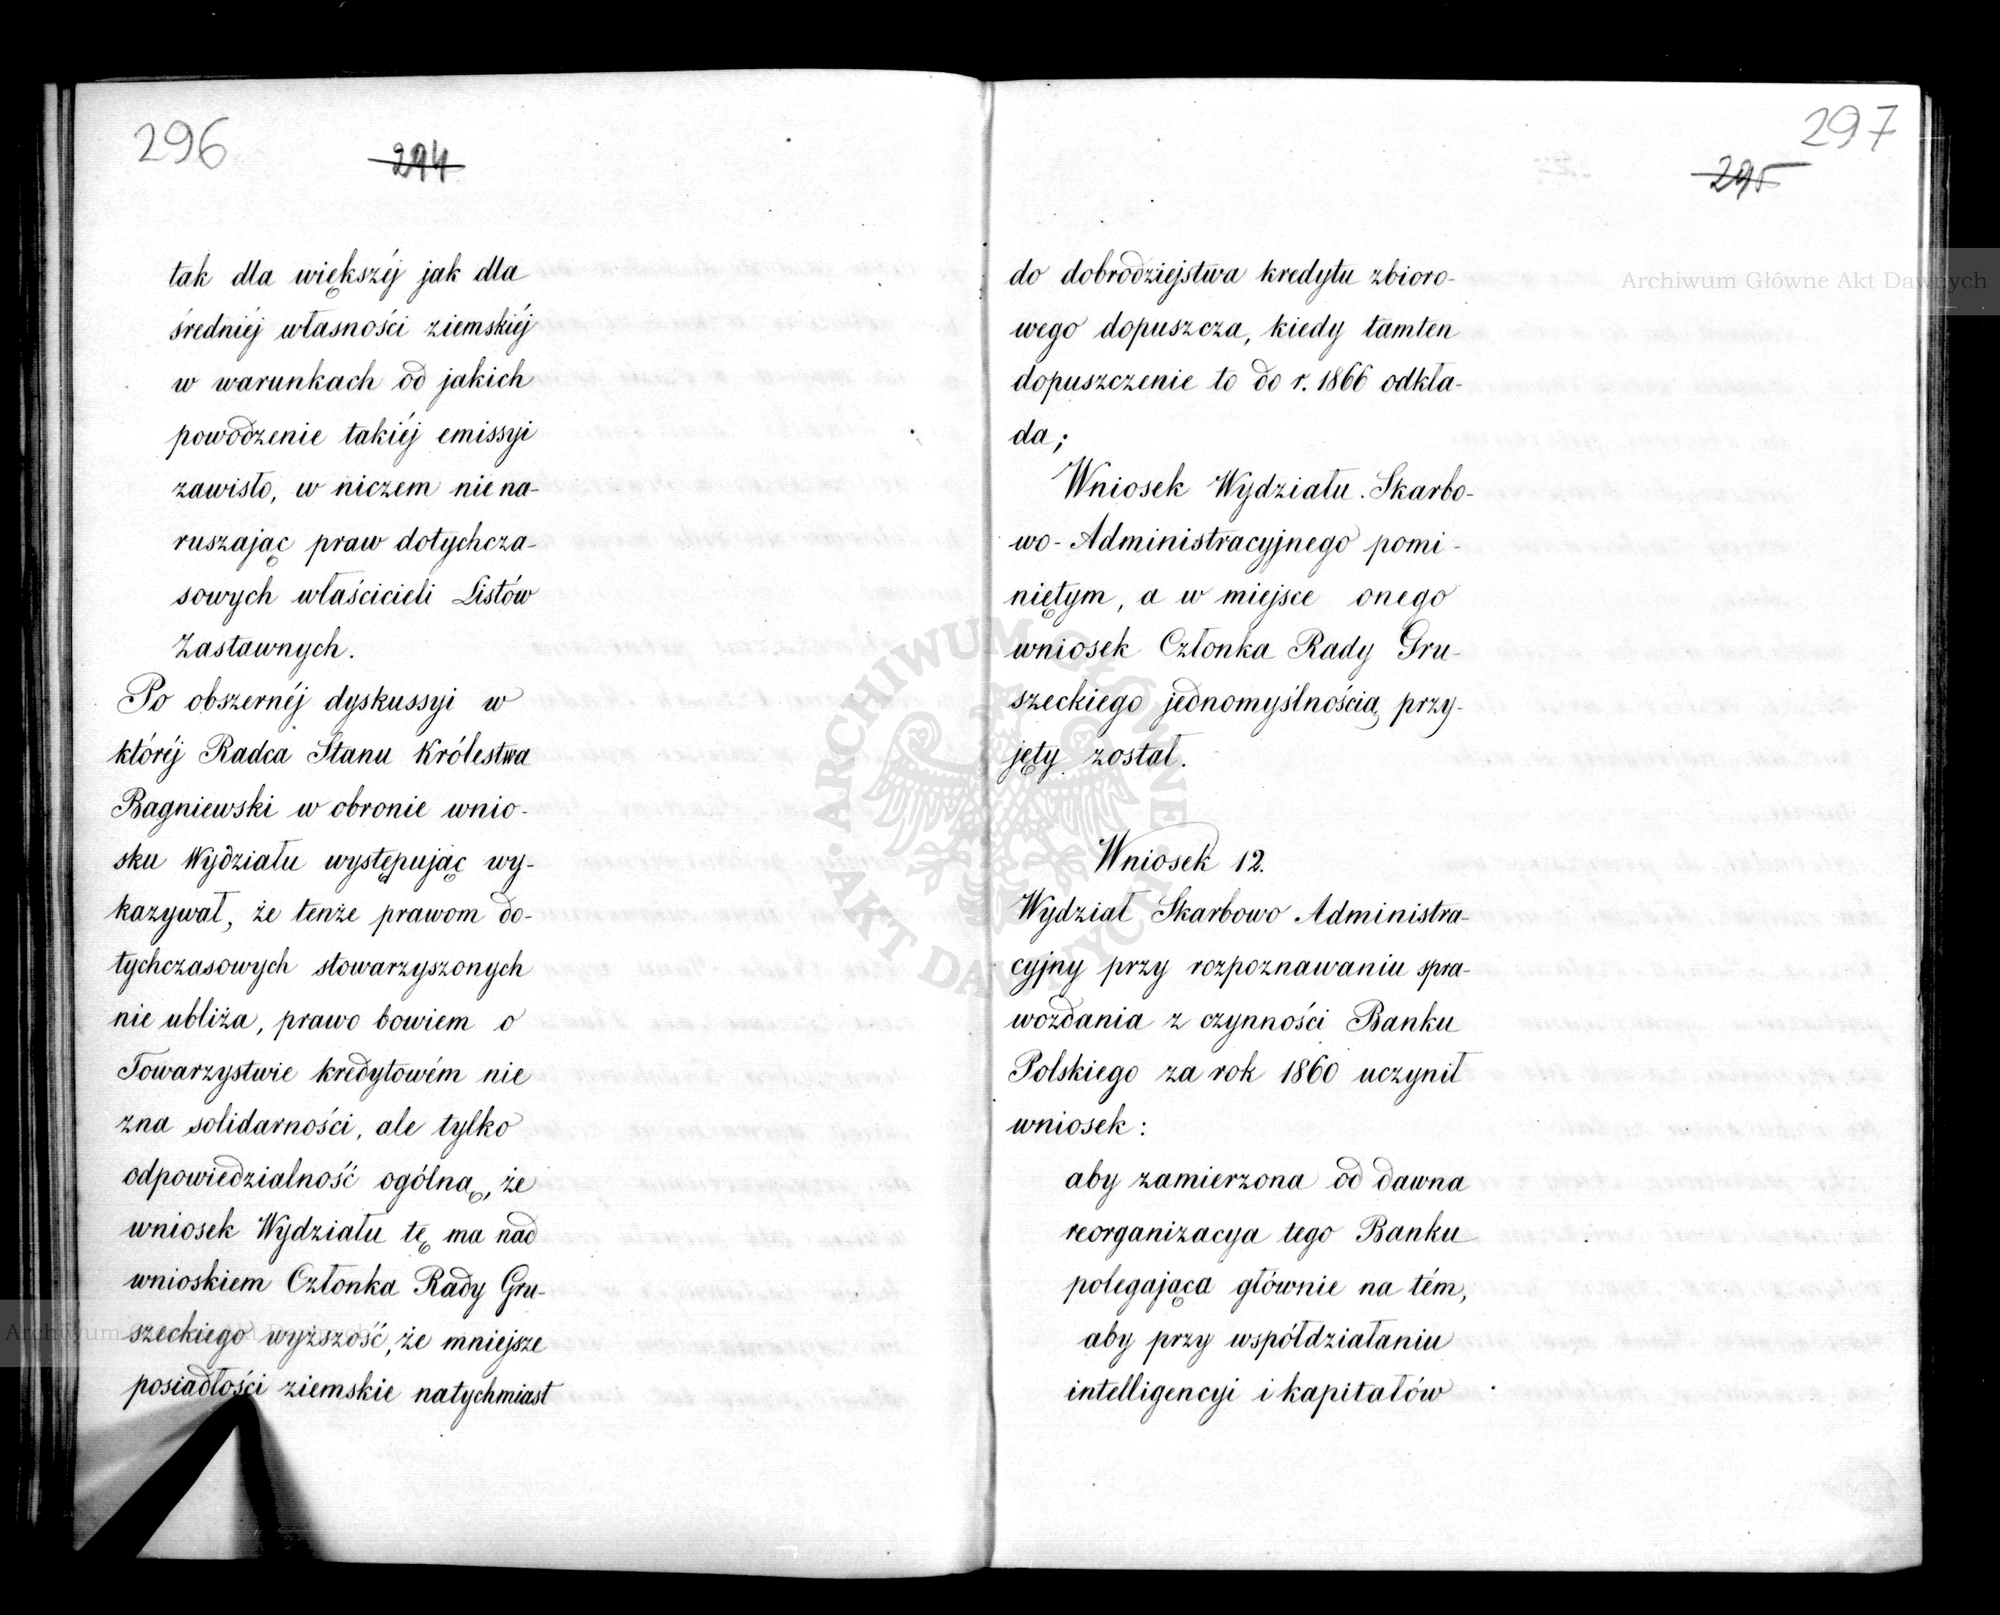 296
294
tak dla większéj jak dla
średniéj własności ziemskiéj
w warunkach od jakich
powodzenie takiéj emissyi
zawisło, w niczem nie na-
ruszając praw dotychcza-
sowych właścicieli Listów
Zastawnych.
Po obszernéj dyskussyi w
któréj Radca Stanu Królestwa
Bagniewski w obronie wnio-
sku Wydziału występując wy-
kazywał, że tenże prawom do-
tychczasowych stowarzyszonych
nie ubliża, prawo bowiem o
Towarzystwie kredytowém nie
zna solidarności, ale tylko
odpowiedzialność ogólną, że
wniosek Wydziału tę ma nad
wnioskiem Członka Rady Gru-
szeckiego wyższość, że mniejsze
posiadłości ziemskie natychmiast
297
295
do dobrodziejstwa kredytu zbioro-
wego dopuszcza, kiedy tamten
dopuszczenie to do r. 1866 odkła-
da;
Wniosek Wydziału Skarbo-
wo-Administracyjnego pomi-
niętym, a w miejsce onego
wniosek Członka Rady Gru-
szeckiego jednomyślnością przy-
jęty został.
Wniosek 12.
Wydział Skarbowo Administra-
cyjny przy rozpoznawaniu spra-
wozdania z czynności Banku
Polskiego za rok 1860 uczynił
wniosek:
aby zamierzona od dawna
reorganizacya tego Banku
polegająca głównie na tém,
aby przy współdziałaniu
intelligencyi i kapitałów
Archiwum Główne Akt Dawnych
Archiwum Główne Akt Dawnych
ARCHIWUM GŁÓWNE AKT DAWNYCH